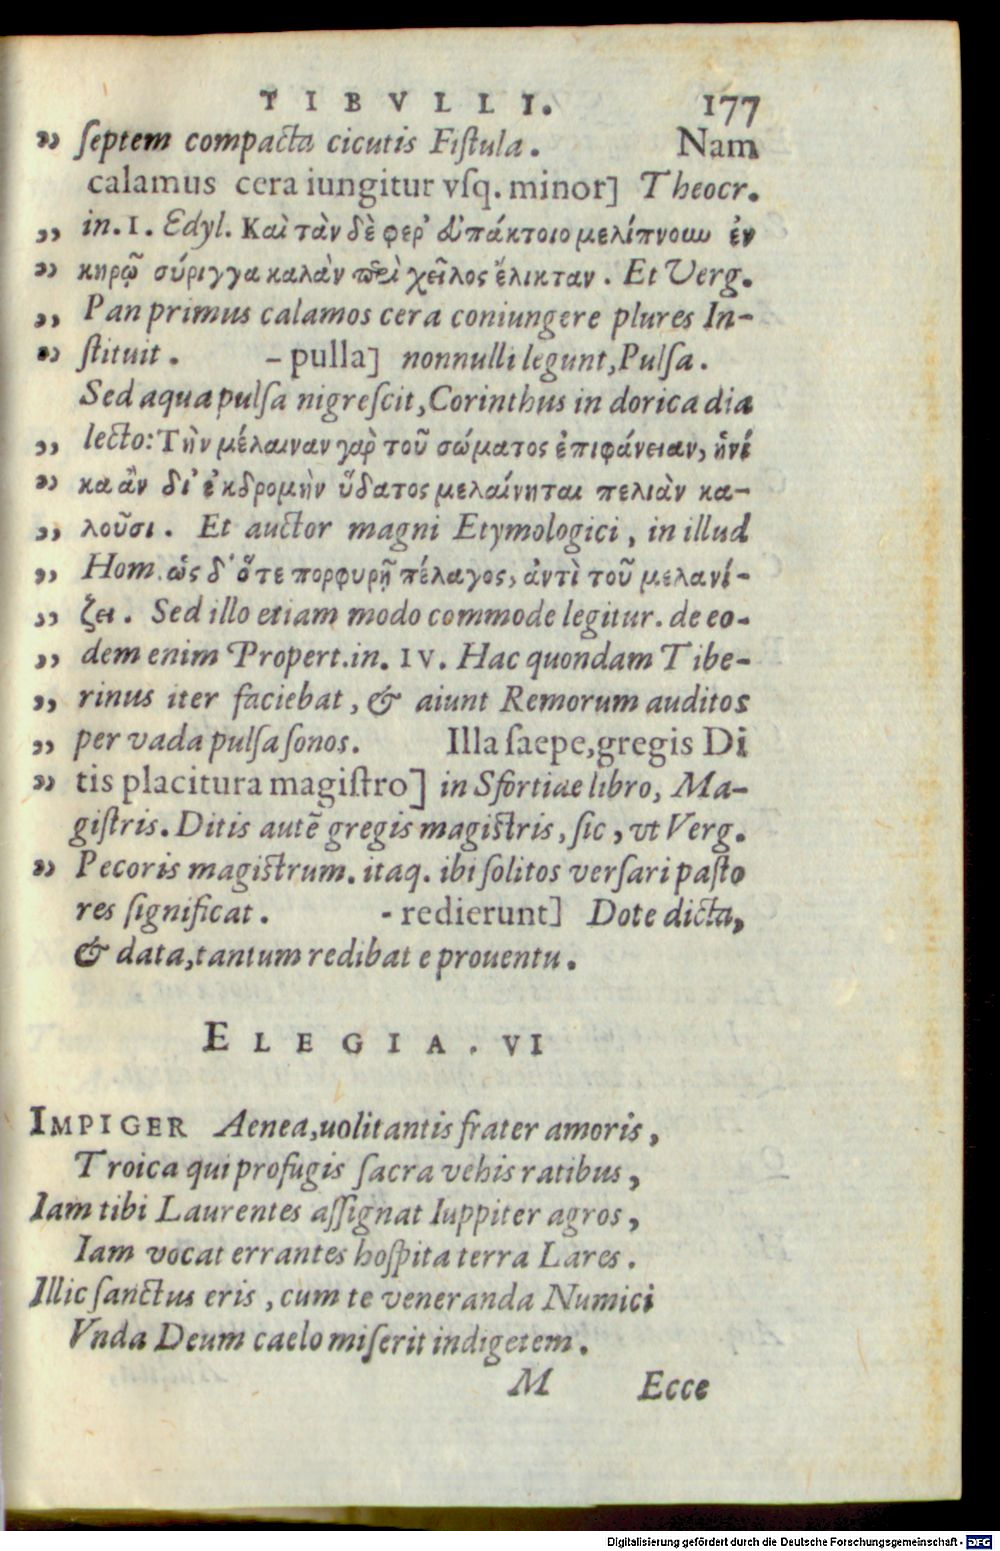 TIBVLLI. 177
„ ſeptem compacta cicutis Fiſtula. Nam
calamus cera iungitur vſq. minor] Theocr.
„ in. I. Edyl. Καὶ τὰν δὲ φερ' εὐπάκτοιο μελίπνουν ἐν
„ κηρῷ σύριγγα καλὰν περὶ χεῖλος ἕλικταν. Et Verg.
„ Pan primus calamos cera coniungere plures In-
„ ſtituit. -pulla] nonnulli legunt, Pulſa.
Sed aqua pulſa nigreſcit, Corinthus in dorica dia
„ lecto: Τὴν μέλαιναν γὰρ τοῦ σώματος ἐπιφάνειαν, ἡνί
„ κα ἂν δι' ἐκδρομὴν ὕδατος μελαίνηται πελιὰν κα-
„ λοῦσι. Et auctor magni Etymologici, in illud
„ Hom. ὡς δ' ὅτε πορφυρῇ πέλαγος, ἀντὶ τοῦ μελανί-
„ ζει. Sed illo etiam modo commode legitur. de eo-
„ dem enim Propert. in. IV. Hac quondam Tibe-
„ rinus iter faciebat, & aiunt Remorum auditos
„ per vada pulſa ſonos. Illa ſaepe, gregis Di
„ tis placitura magiſtro] in Sfortiae libro, Ma-
giſtris. Ditis autē gregis magiſtris, ſic, vt Verg.
„ Pecoris magiſtrum. itaq. ibi ſolitos verſari paſto
res ſignificat. -redierunt] Dote dicta,
& data, tantum redibat e prouentu.
ELEGIA. VI
IMPIGER Aenea, uolitantis frater amoris,
Troica qui profugis ſacra vehis ratibus,
Iam tibi Laurentes aſſignat Iuppiter agros,
Iam vocat errantes hoſpita terra Lares.
Illic ſanctus eris, cum te veneranda Numici
Vnda Deum caelo miſerit indigetem.
M Ecce
Digitalisierung gefördert durch die Deutsche Forschungsgemeinschaft - DFG